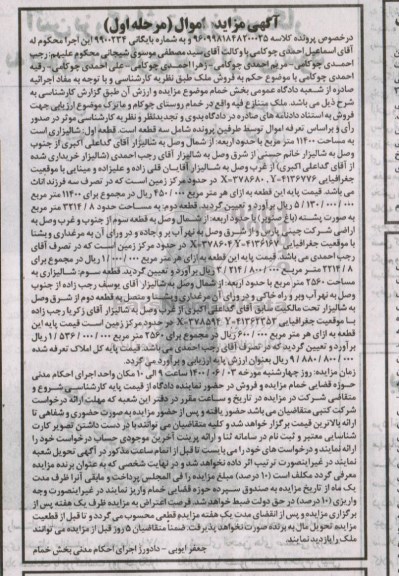 آگهی مزایده اموال (مرحله اول)
درخصوص پرونده کلاسه ۹۶۰۹۹۸۱۸۴۸۳۰۰۰۲۵ و به شماره بایگانی ۱۹۹۰۰۲۳۴ این اجرا محکوم له
آقای اسماعیل احمدی چوکامی با وکالت آقای سید مصطفی موسوی شیجانی محکوم علیهم: رجب
احمدی چوکامی – مریم احمدی چوکامی – زهرا احمدی چوکامی – علی احمدی چوکامی – رقیه
احمدی چوکامی با موضوع حکم به فروش ملک طبق نظریه کارشناسی و با توجه به مفاد اجرائیه
صادره از شعبه دادگاه عمومی بخش خمام موضوع مزایده و ارزش آن طبق گزارش کارشناسی به
شرح ذیل می باشد. ملک متنازع فیه واقع در خمام روستای چوکام و مابزک موضوع ارزیابی جهت
فروش به استناد دادنامه های صادره در دادگاه بدوی و تجدیدنظر و نظریه کارشناسی موثر در صدور
رأی و براساس تعرفه اموال توسط طرفین پرونده شامل سه قطعه است. قطعه اول: شالیزاری است
به مساحت ۱۱۴۰۰ متر مربع با حدود اربعه: از شمال وصل به شالیزار آقای گداعلی اکبری از جنوب
وصل به شالیزار خانم حسینی از شرق وصل به شالیزار آقای رجب احمدی (شالیزار خریداری شده
از آقای گداعلی اکبری) از غرب وصل به شالیزار آقایان قلی زاده و علیزاده و مبنایی با موقعیت
جغرافیایی X-۳۷۸۶۸۰, Y-۴۱۳۶۷۷۶ در حدود مرکز زمین است که در تصرف سه فرزند اناث
می باشد. قیمت پایه این قطعه به ازای هر متر مربع ۴۵۰/۰۰۰ ریال در مجموع برای ۱۱۴۰۰ متر مربع
۵/۱۳۰/۰۰۰/۰۰۰ ریال برآورد و تعیین گردید. قطعه دوم: به مساحت حدود ۳۳۱۴/۸ متر مربع
به صورت پشته (باغ صنوبر) با حدود اربعه: از شمال وصل به قطعه سوم از جنوب و غرب وصل به
اراضی شرکت چینی پارس و از شرق وصل به نهر آب بر و جاده و در ورای آن به مرغداری ویشتا
با موقعیت جغرافیایی X-۳۷۸۶۰۴, Y-۴۱۳۶۱۶۷ در حدود مرکز زمین است که در تصرف آقای
رجب احمدی می باشد. قیمت پایه این قطعه به ازای هر متر مربع ۱/۰۰۰/۰۰۰ ریال در مجموع برای
۲۲۱۴/۸ متر مربع ۳/۲۱۴/۸۰۰/۰۰۰ ریال برآورد و تعیین گردید. قطعه سوم: شالیزاری به
مساحت ۲۵۶۰ متر مربع با حدود اربعه: از شمال وصل به شالیزار آقای یوسف رجب زاده از جنوب
وصل به نهر آب وبر و راه خاکی و در ورای آن مرغداری ویشتا و متصل به قطعه دوم از شرق وصل
به شالیزار تحت مالکیت سابق آقای گداعلی اکبری از غرب وصل به شالیزار آقای زکریا رجب زاده
با موقعیت جغرافیایی X-۳۷۸۵۹۴ Y-۴۱۳۶۲۳۵۲ در حدود مرکز زمین است قیمت پایه این
قطعه به ازای هر متر مربع ۶۰۰/۰۰۰ ریال در مجموع برای ۲۵۶۰ متر مربع ۱/۵۳۶/۰۰۰/۰۰۰ ریال
برآورد و تعیین گردید که در تصرف آقای رجب احمدی می باشد. قیمت پایه کل املاک تعرفه شده
۹/۸۸۰/۸۰۰/۰۰۰ ریال بعنوان ارزش پایه ارزیابی و برآورد می گردد.
زمان مزایده: روز چهارشنبه مورخه ۱۴۰۰/۰۶/۰۳ ساعت ۹ الی ۱۰ مکان واحد اجرای احکام مدنی
حوزه قضایی خمام مزایده و فروش در حضور نماینده دادگاه از قیمت پایه کارشناسی شروع و
متقاضی شرکت در مزایده در تاریخ و ساعت مقرر در دفتر این شعبه که مهلت ارائه درخواست
شرکت کتبی متقاضیان می باشد حضور یافته و پس از حضور مزایده به صورت حضوری و شفاهی تا
ارائه بالاترین قیمت برگزار خواهد شد و کلیه متقاضیان می توانند با در دست داشتن تصویر کارت
شناسایی معتبر و ثبت نام در سامانه ثنا و ارائه پرینت آخرین موجودی حساب درخواست خود را
ارائه نمایند و درخواست های خود را می بایست تا قبل از اتمام ساعت مذکور در آگهی تحویل شعبه
نمایند در غیر اینصورت ترتیب اثر داده نخواهد شد و در نهایت شخصی که به عنوان برنده مزایده
معرفی گردد مکلف است (۱۰ درصد) مبلغ مزایده را فی المجلس پرداخت و مابقی آنرا ظرف مدت
یک ماه از تاریخ مزایده به صندوق سپرده حوزه قضایی خمام واریز نمایند در غیر اینصورت وجه
واریزی (۱۰ درصد) در حق دولت ضبط خواهد شد. فرصت اعتراض به مزایده ظرف یک هفته پس از
برگزاری مزایده و پس از انقضای مدت یک هفته مزایده قطعی محسوب می گردد و تا قبل از قطعیت
مزایده، تحویل مال به برنده صورت نخواهد پذیرفت. ضمناً متقاضیان ۵ روز قبل از مزایده می توانند
ملک را بازدید نمایند.
جعفر ایوبی – دادورز اجرای احکام مدنی بخش خمام